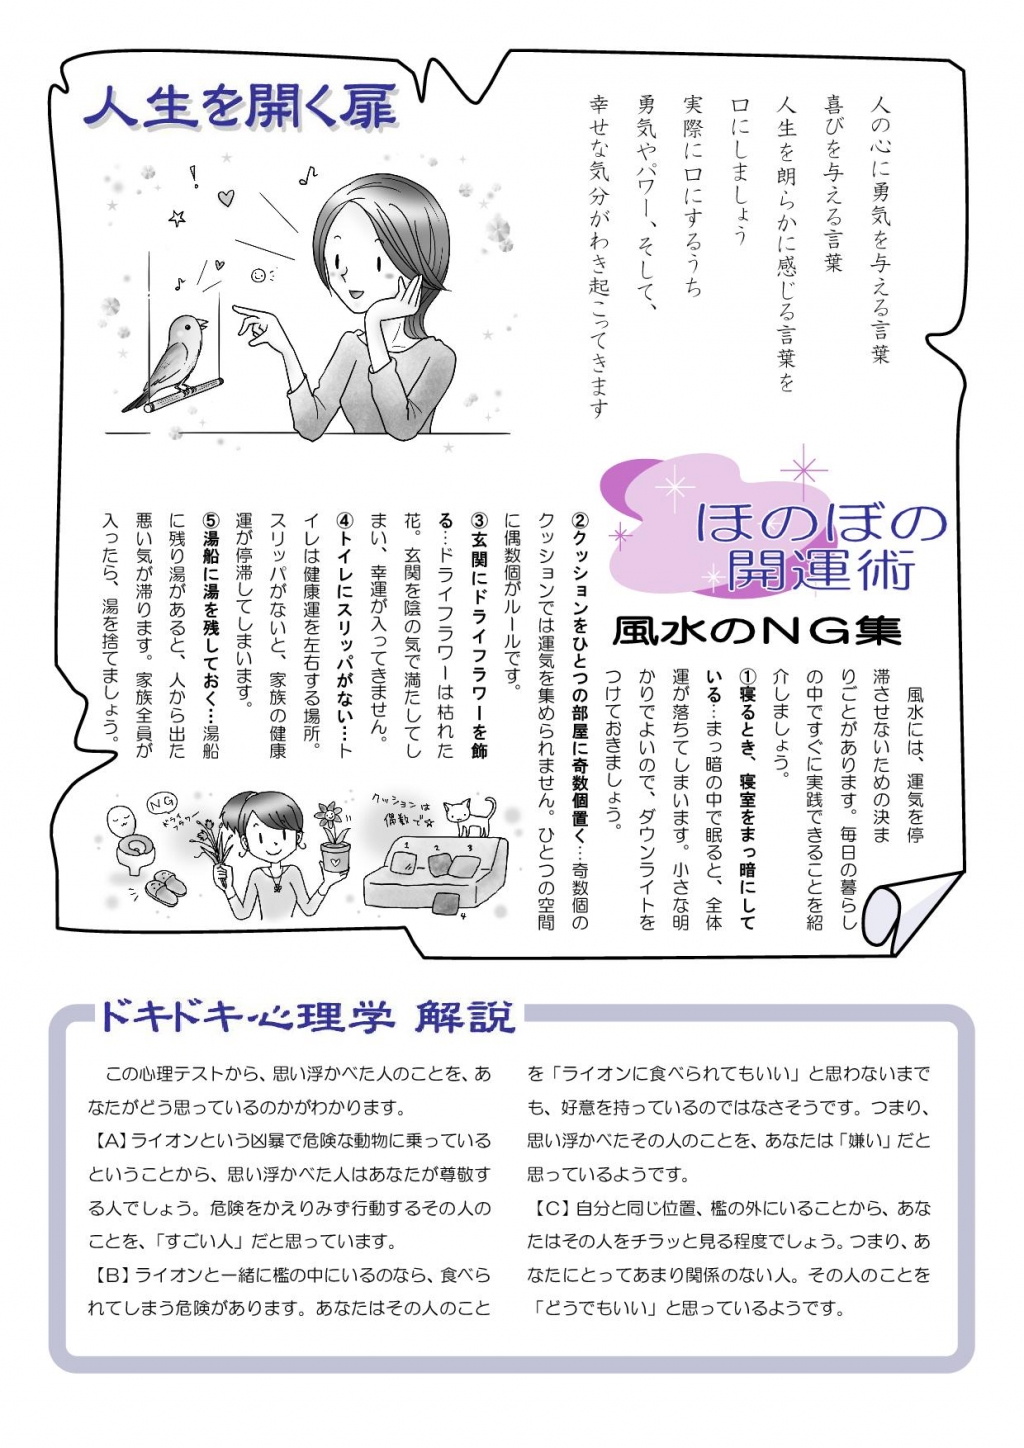 人生を開く扉
人の心に勇気を与える言葉
喜びを与える言葉
人生を朗らかに感じる言葉を
口にしましょう
実際に口にするうち
勇気やパワー、そして、
幸せな気分がわき起こってきます
ほのぼの
開運術
風水のNG集
風水には、運気を停
滞させないための決ま
りごとがあります。毎日の暮らし
の中ですぐに実践できることを紹
介しましょう。
①寝るとき、寝室をまっ暗にして
いる…まっ暗の中で眠ると、全体
運が落ちてしまいます。小さな明
かりでよいので、ダウンライトを
つけておきましょう。
②クッションをひとつの部屋に奇数個置く…奇数個の
クッションでは運気を集められません。ひとつの空間
に偶数個がルールです。
③玄関にドライフラワーを飾
る…ドライフラワーは枯れた
花。玄関を陰の気で満たしてし
まい、幸運が入ってきません。
④トイレにスリッパがない…ト
イレは健康運を左右する場所。
スリッパがないと、家族の健康
運が停滞してしまいます。
⑤湯船に湯を残しておく…湯船
に残り湯があると、人から出た
悪い気が滞ります。家族全員が
入ったら、湯を捨てましょう。
NG
ドライ
フラワー
クッションは
偶数で☆
1 2 3
4
ドキドキ心理学 解説
この心理テストから、思い浮かべた人のことを、あ
なたがどう思っているのかがわかります。
【A】ライオンという凶暴で危険な動物に乗っている
ということから、思い浮かべた人はあなたが尊敬す
る人でしょう。危険をかえりみず行動するその人の
ことを、「すごい人」だと思っています。
【B】ライオンと一緒に檻の中にいるのなら、食べら
れてしまう危険があります。あなたはその人のこと
を「ライオンに食べられてもいい」と思わないまで
も、好意を持っているのではなさそうです。つまり、
思い浮かべたその人のことを、あなたは「嫌い」だと
思っているようです。
【C】自分と同じ位置、檻の外にいることから、あな
たはその人をチラッと見る程度でしょう。つまり、あ
なたにとってあまり関係のない人。その人のことを
「どうでもいい」と思っているようです。